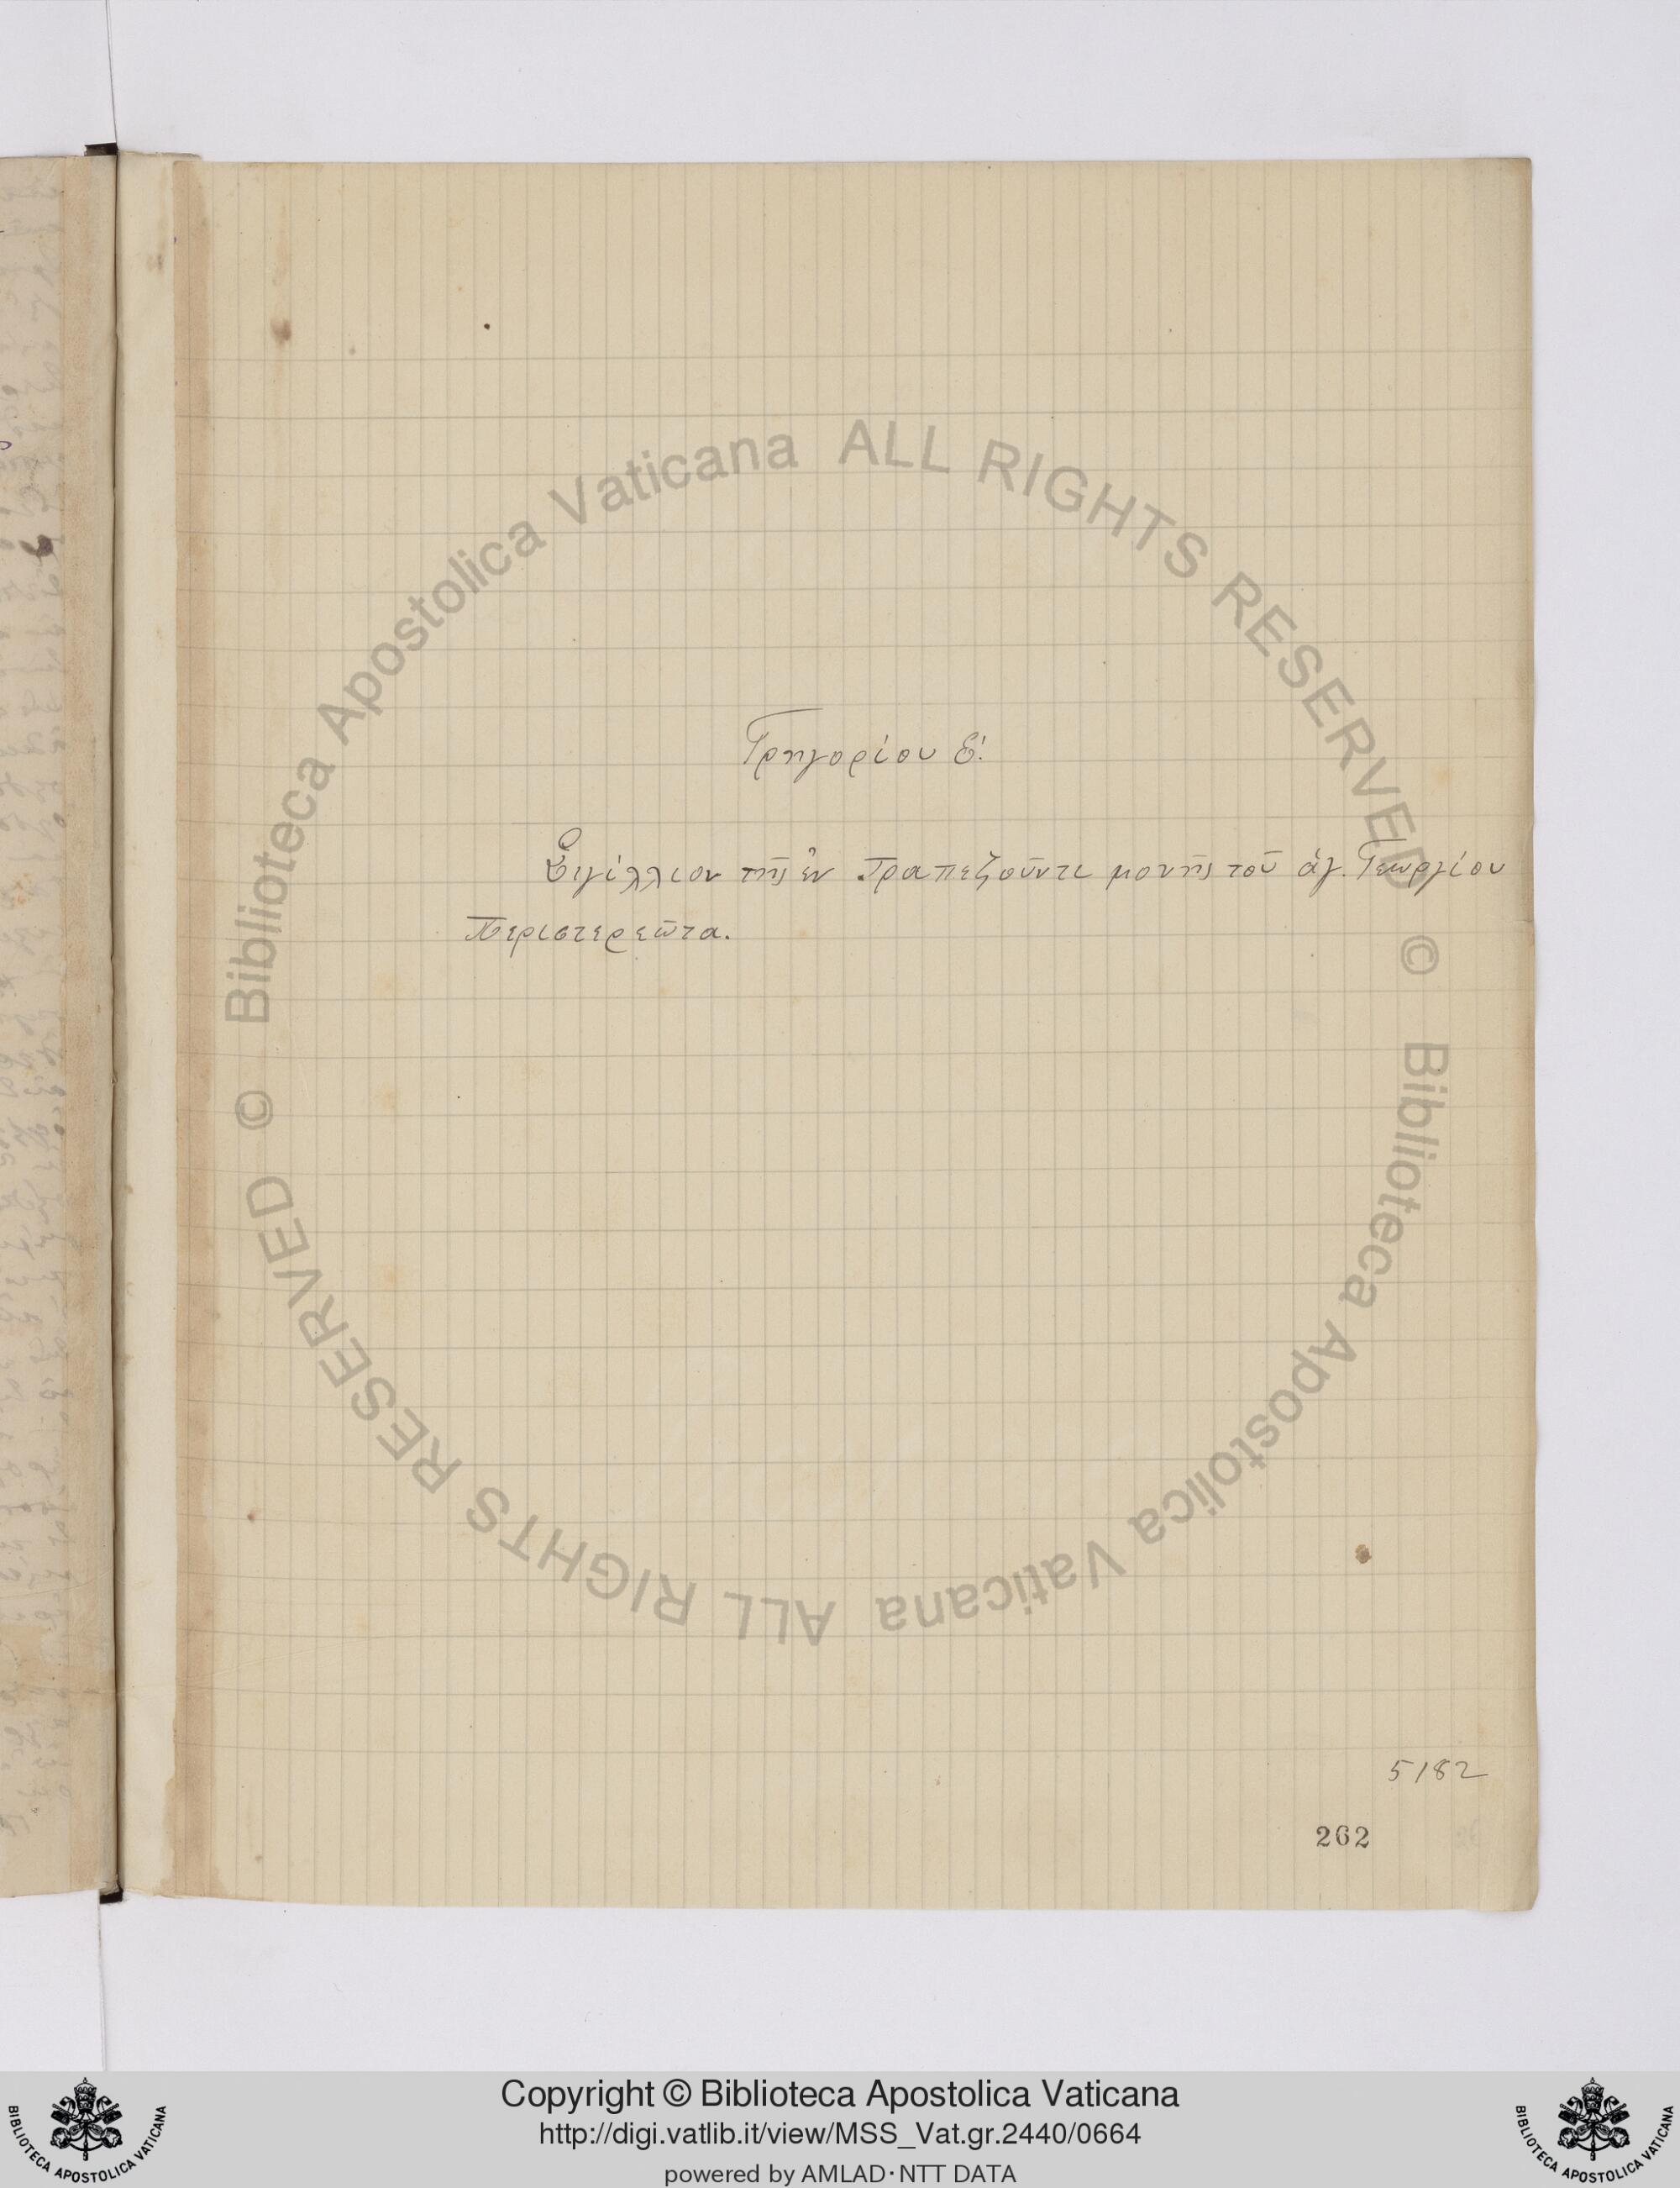 Γρηγορίου Ε΄.
Σιγίλλιον τῆς ἐν Τραπεζοῦντι μονῆς τοῦ ἁγ. Γεωργίου
Περιστερεῶτα.
5182
262
© Biblioteca Apostolica Vaticana ALL RIGHTS RESERVED
© Biblioteca Apostolica Vaticana ALL RIGHTS RESERVED
Copyright © Biblioteca Apostolica Vaticana
http://digi.vatlib.it/view/MSS_Vat.gr.2440/0664
powered by AMLAD·NTT DATA
BIBLIOTECA APOSTOLICA VATICANA
BIBLIOTECA APOSTOLICA VATICANA